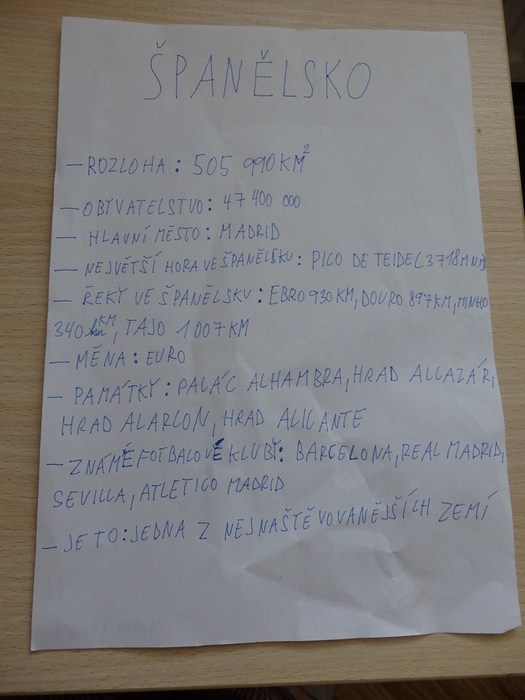 ŠPANĚLSKO
— ROZLOHA: 505 990 KM²
— OBYVATELSTVO: 47 400 000
— HLAVNÍ MĚSTO: MADRID
— NEJVĚTŠÍ HORA VE ŠPANĚLSKU: PICO DE TEIDE (3718 M N
— ŘEKY VE ŠPANĚLSKU: EBRO 930 KM, DOURO 897KM, MINHO
340 KM, TAJO 1 007 KM
— MĚNA: EURO
— PAMÁTKY: PALÁC ALHAMBRA, HRAD ALCAZÁR,
HRAD ALARCON, HRAD ALICANTE
— ZNÁMÉ FOTBALOVÉ KLUBY: BARCELONA, REAL MADRID,
SEVILLA, ATLETICO MADRID
— JE TO: JEDNA Z NEJNAŠTĚVOVANĚJŠÍCH ZEMÍ